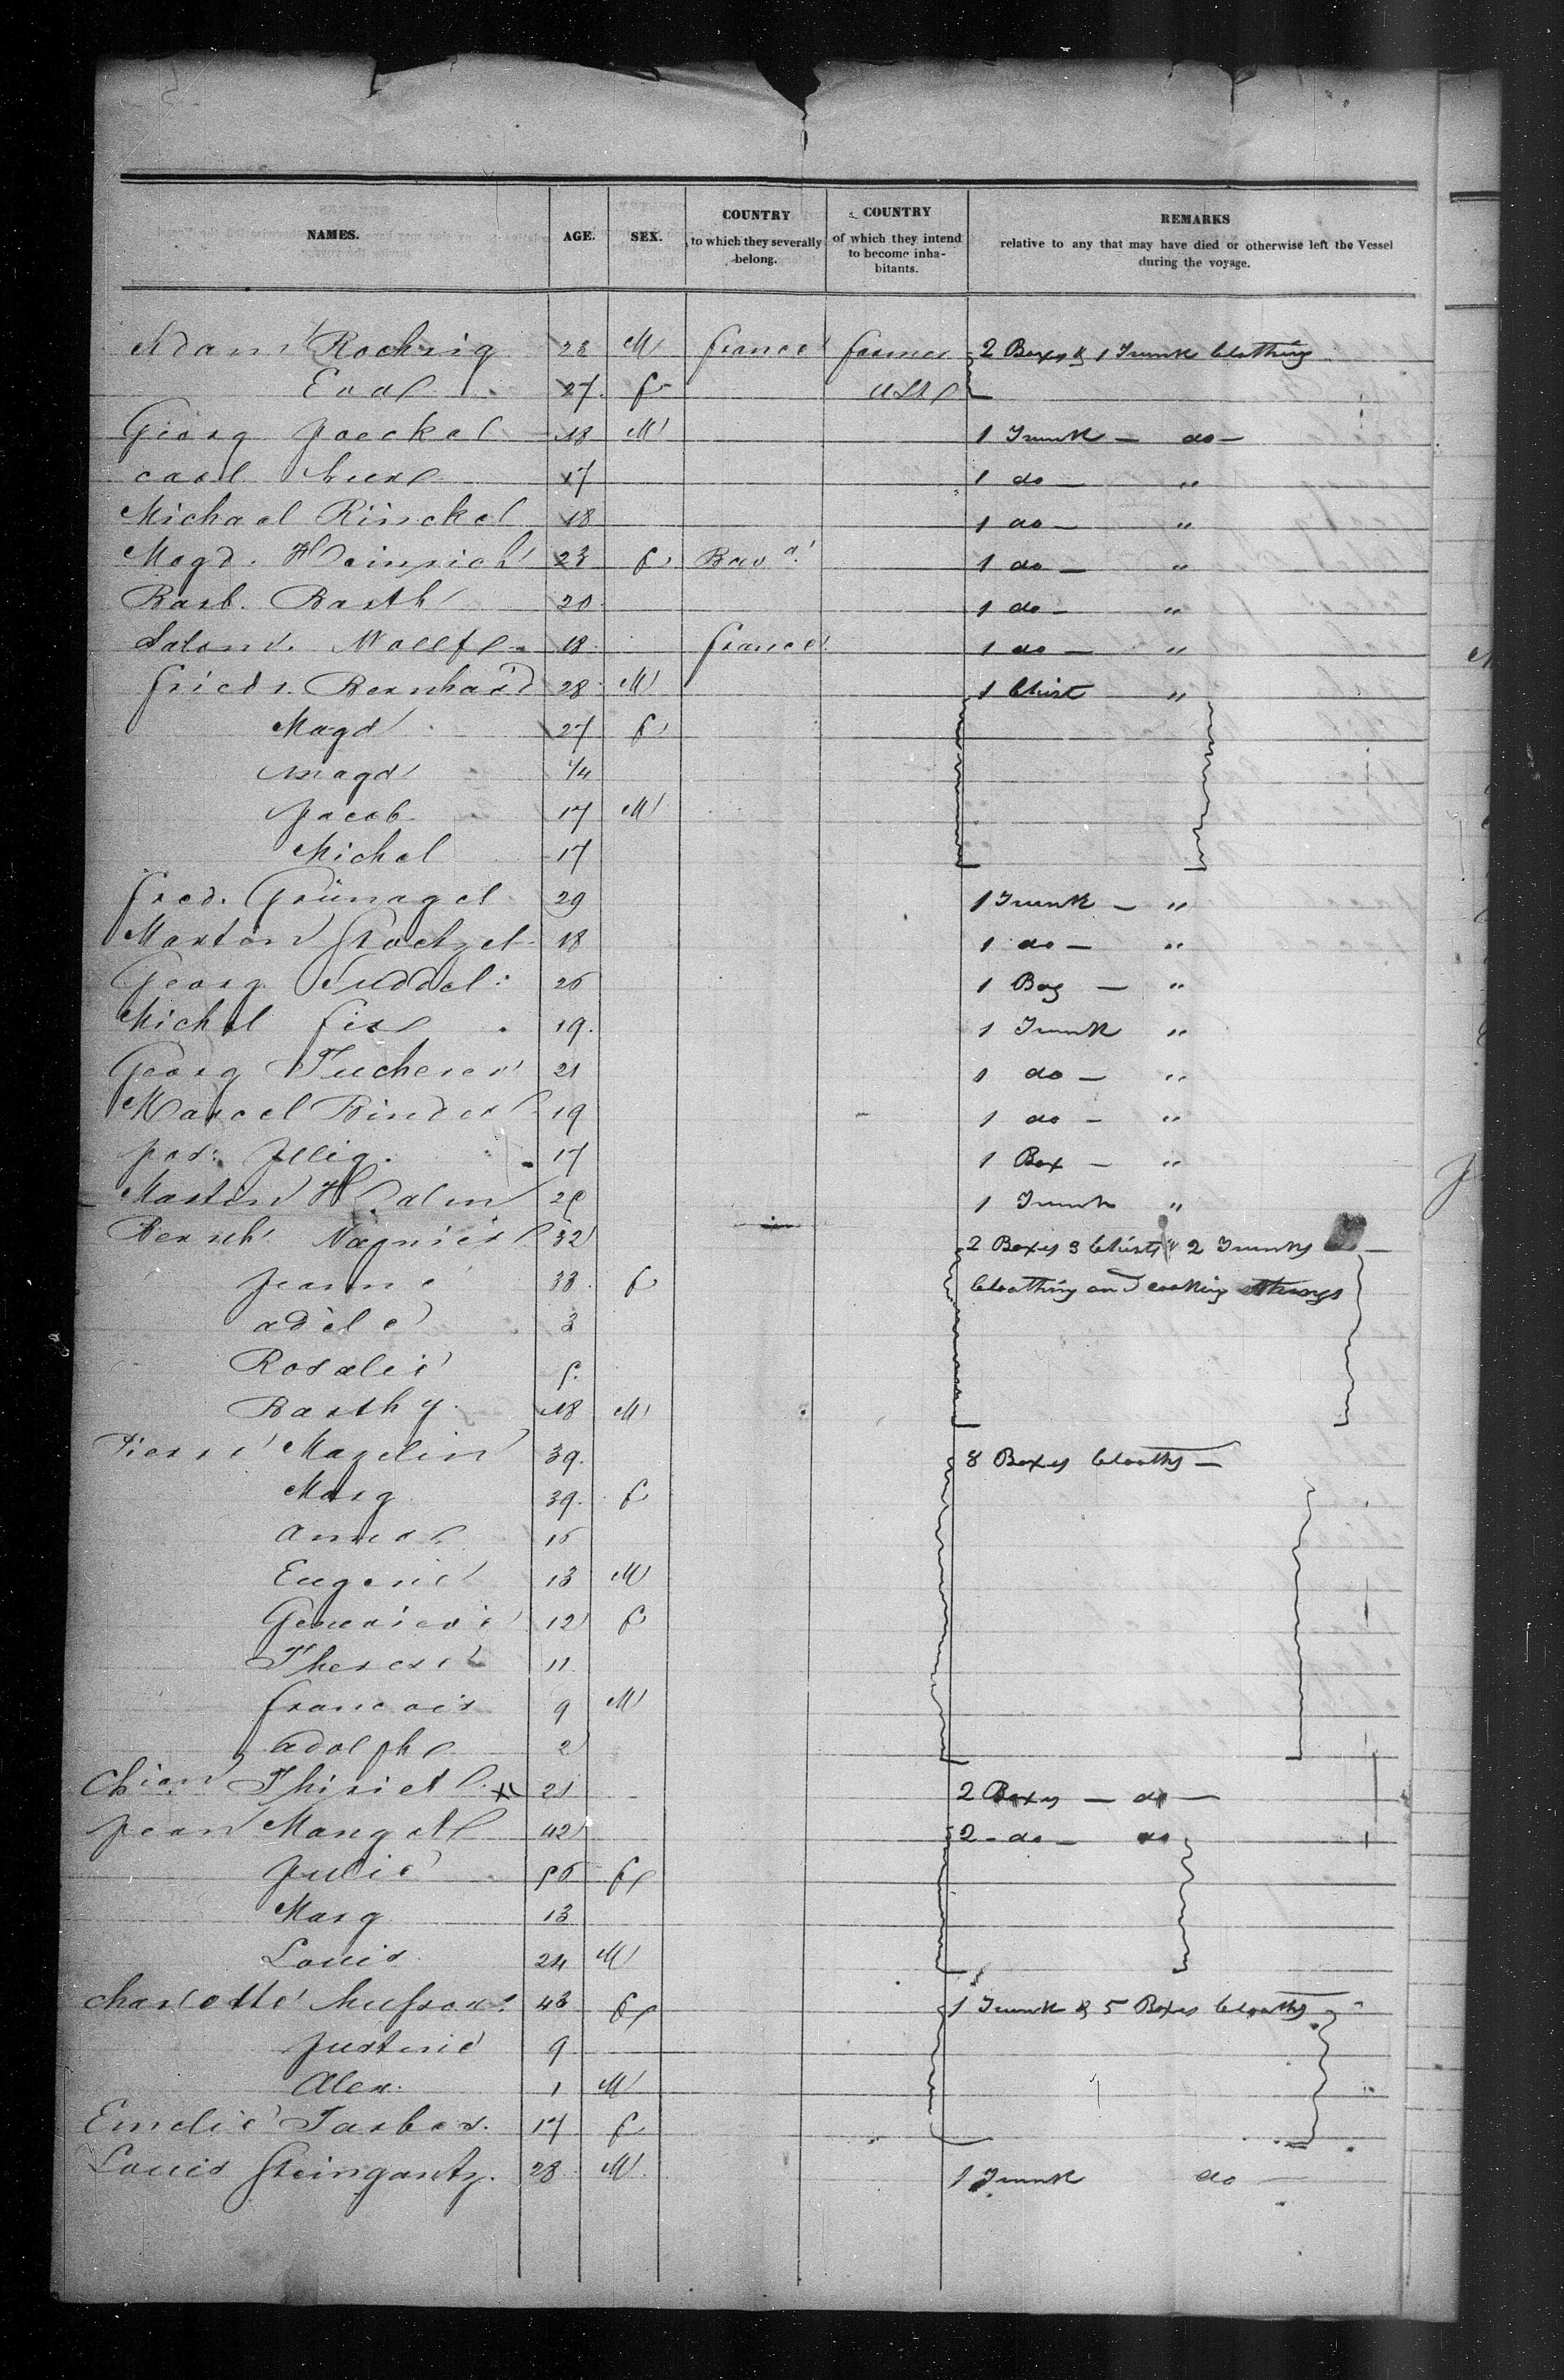 NAMES. AGE. SEX. COUNTRY to which they severally belong. COUNTRY of which they intend to become inhabitants. REMARKS relative to any that may have died or otherwise left the Vessel during the voyage.
Adam Roehrig 28 M france farmer 2 Boxes & 1 Trunk Clothing
Eva 27 f USA
Georg Joeckel 18 M 1 Trunk — do —
Carl 17 1 do — "
Michael Rinckel 18 1 do — "
Magd. Heinrich 23 f Bava. 1 do — "
Barb. Barth 20 1 do — "
Salom. Wolff 18 france 1 do — "
friedr. Bernhard 28 M 1 Chist "
Magd 27 f
Magd 1/4
Jacob 17 M
Michel 17
fred. Grünagel 29 1 Trunk — "
Martin Stoetzel 18 1 do — "
Georg Suddel 26 1 Bag — "
Michel fix 19. 1 Trunk "
Georg Tucherer 21 1 do — "
Marcel Binder 19 1 do — "
Jos: Illig. 17 1 Box — "
Martin Halm 1 Trunk "
Bernh Nagnier 32 2 Boxes 3 Chists & 2 Trunks —
Jeanne 38 f Cloathing and cooking things
adèle 3
Rosalie 5.
Barthy. 18 M
Pierre Mazelin 39. 8 Boxes Cloaths —
Marg 39. f
15
Eugene 13 M
Genevieve 12 f
Therese 11
francois 9 M
adolphe 2
Chian Thiriet 21 2 Boxes — do —
Jean Mangel 42 2 - do — do
Julie 56 f
Marg 13
Louis 24 M
Charlotte Husson 43 f 1 Trunk & 5 Boxes Cloaths
Justine 9
Alex. 1 M
Emelie Tarber. 17 f
Louis Steingantz. 28 M 1 Trunk do —